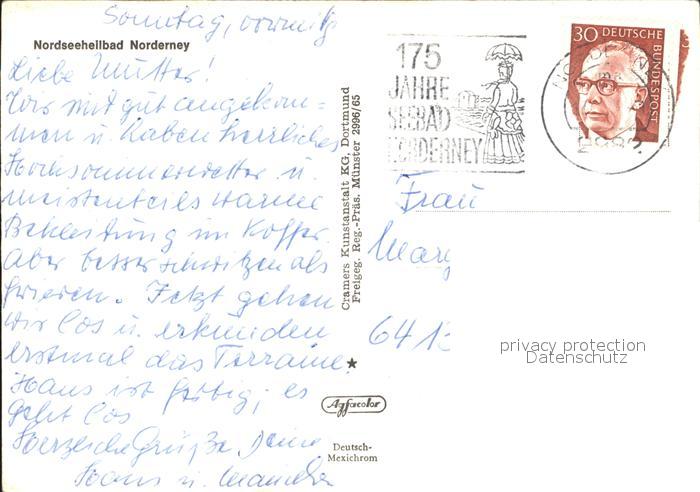 Sonntag, vormitg
Nordseeheilbad Norderney
Liebe Mutter!
Wir sind gut angekom=
men u. haben herrliches
Hochsommerwetter u.
meistenteils warme
Bekleidung im Koffer.
Aber besser schwitzen als
frieren. Jetzt gehen
wir los u. erkunden
erstmal das Terraine.
Hans ist fertig; es
geht los
Herzliche Grüße Deine
Hans u.
Cramers Kunstanstalt KG, Dortmund
Freigeg. Reg.-Präs. Münster 2996/65
175
JAHRE
SEEBAD
NORDERNEY
30 DEUTSCHE
BUNDESPOST
2982
Frau
Marg
6413
privacy protection
Datenschutz
Agfacolor
Deutsch-
Mexichrom